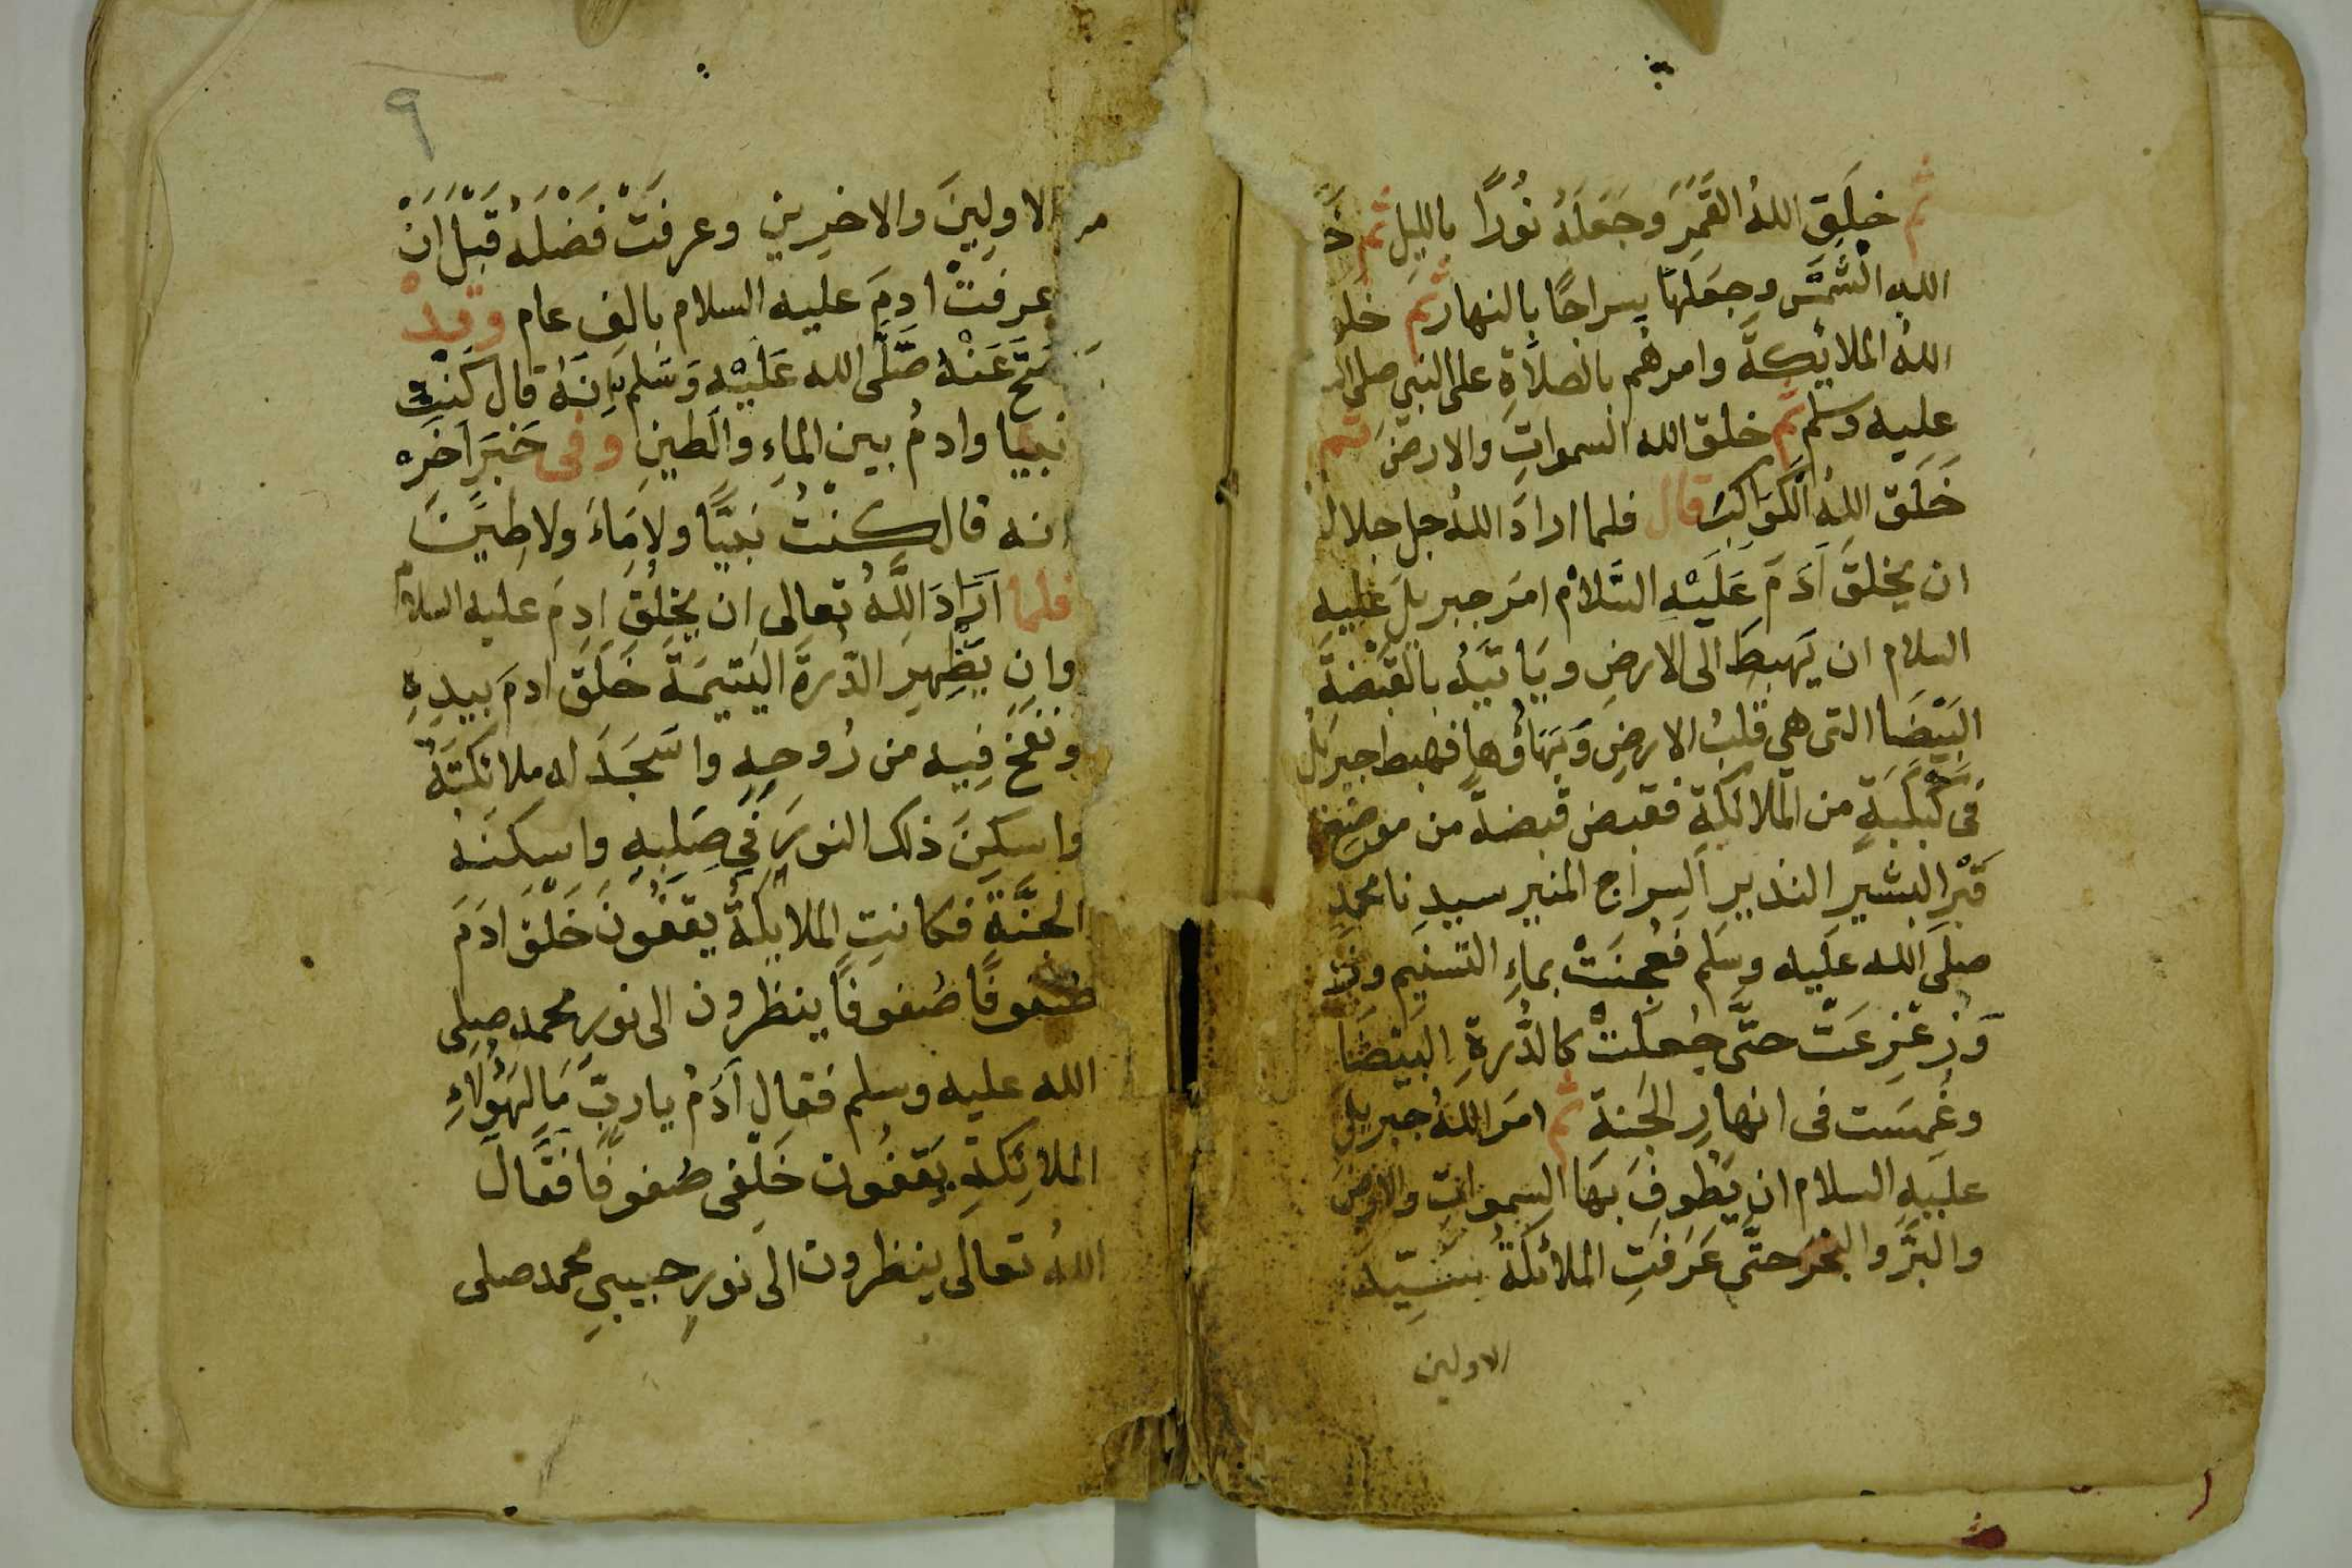 ثم خلق الله القمر وجعله نورا بالليل ثم
الله الشمس وجعلها سراجا بالنهار ثم خلق
الله الملايكة وامرهم بالصلاة على النبي صلى الله
عليه وسلم ثم خلق الله السموات والارض ثم
خلق الله الكواكب قال فلما اراد الله جل جلاله
ان يخلق آدم عليه السلام امر جبريل عليه
السلام ان يهبط الى الارض وياتيه بالقبضة
البيضا التي هي قلب الارض وبهاؤها فهبط جبريل
في كبكبة من الملائكة فقبض قبضة من موضع
قبر البشير النذير السراج المنير سيدنا محمد
صلى الله عليه وسلم فعجنت بماء التسنيم
وزعزعت حتى جعلت كالدرة البيضا
وغمست في انهار الجنة ثم امر الله جبريل
عليه السلام ان يطوف بها السموات والارض
والبر والبحر حتى عرفت الملائكة سيد
الاولين
٩
الاولين والاخرين وعرفت فضله قبل ان
عرفت ادم عليه السلام بالف عام وقد
صح عنه صلى الله عليه وسلم بانه قال كنت
نبيا وادم بين الماء والطين وفى خبر اخره
انه قال كنت نبيا ولا ماء ولا طين
فلما اراد الله تعالى ان يخلق ادم عليه السلام
وان يظهر الدرة اليتيمة خلق ادم بيده
ونفخ فيه من روحه واسجد له ملائكته
واسكن ذلك النور في صلبه واسكنه
الجنة فكانت الملايكة يقفون خلق ادم
صفوفا صفوفا ينظرون الى نور محمد صلى
الله عليه وسلم فقال آدم يا رب ما لهؤلاء
الملائكة يقفون خلفى صفوفا فقال
الله تعالى ينظرون الى نور حبيبي محمد صلى